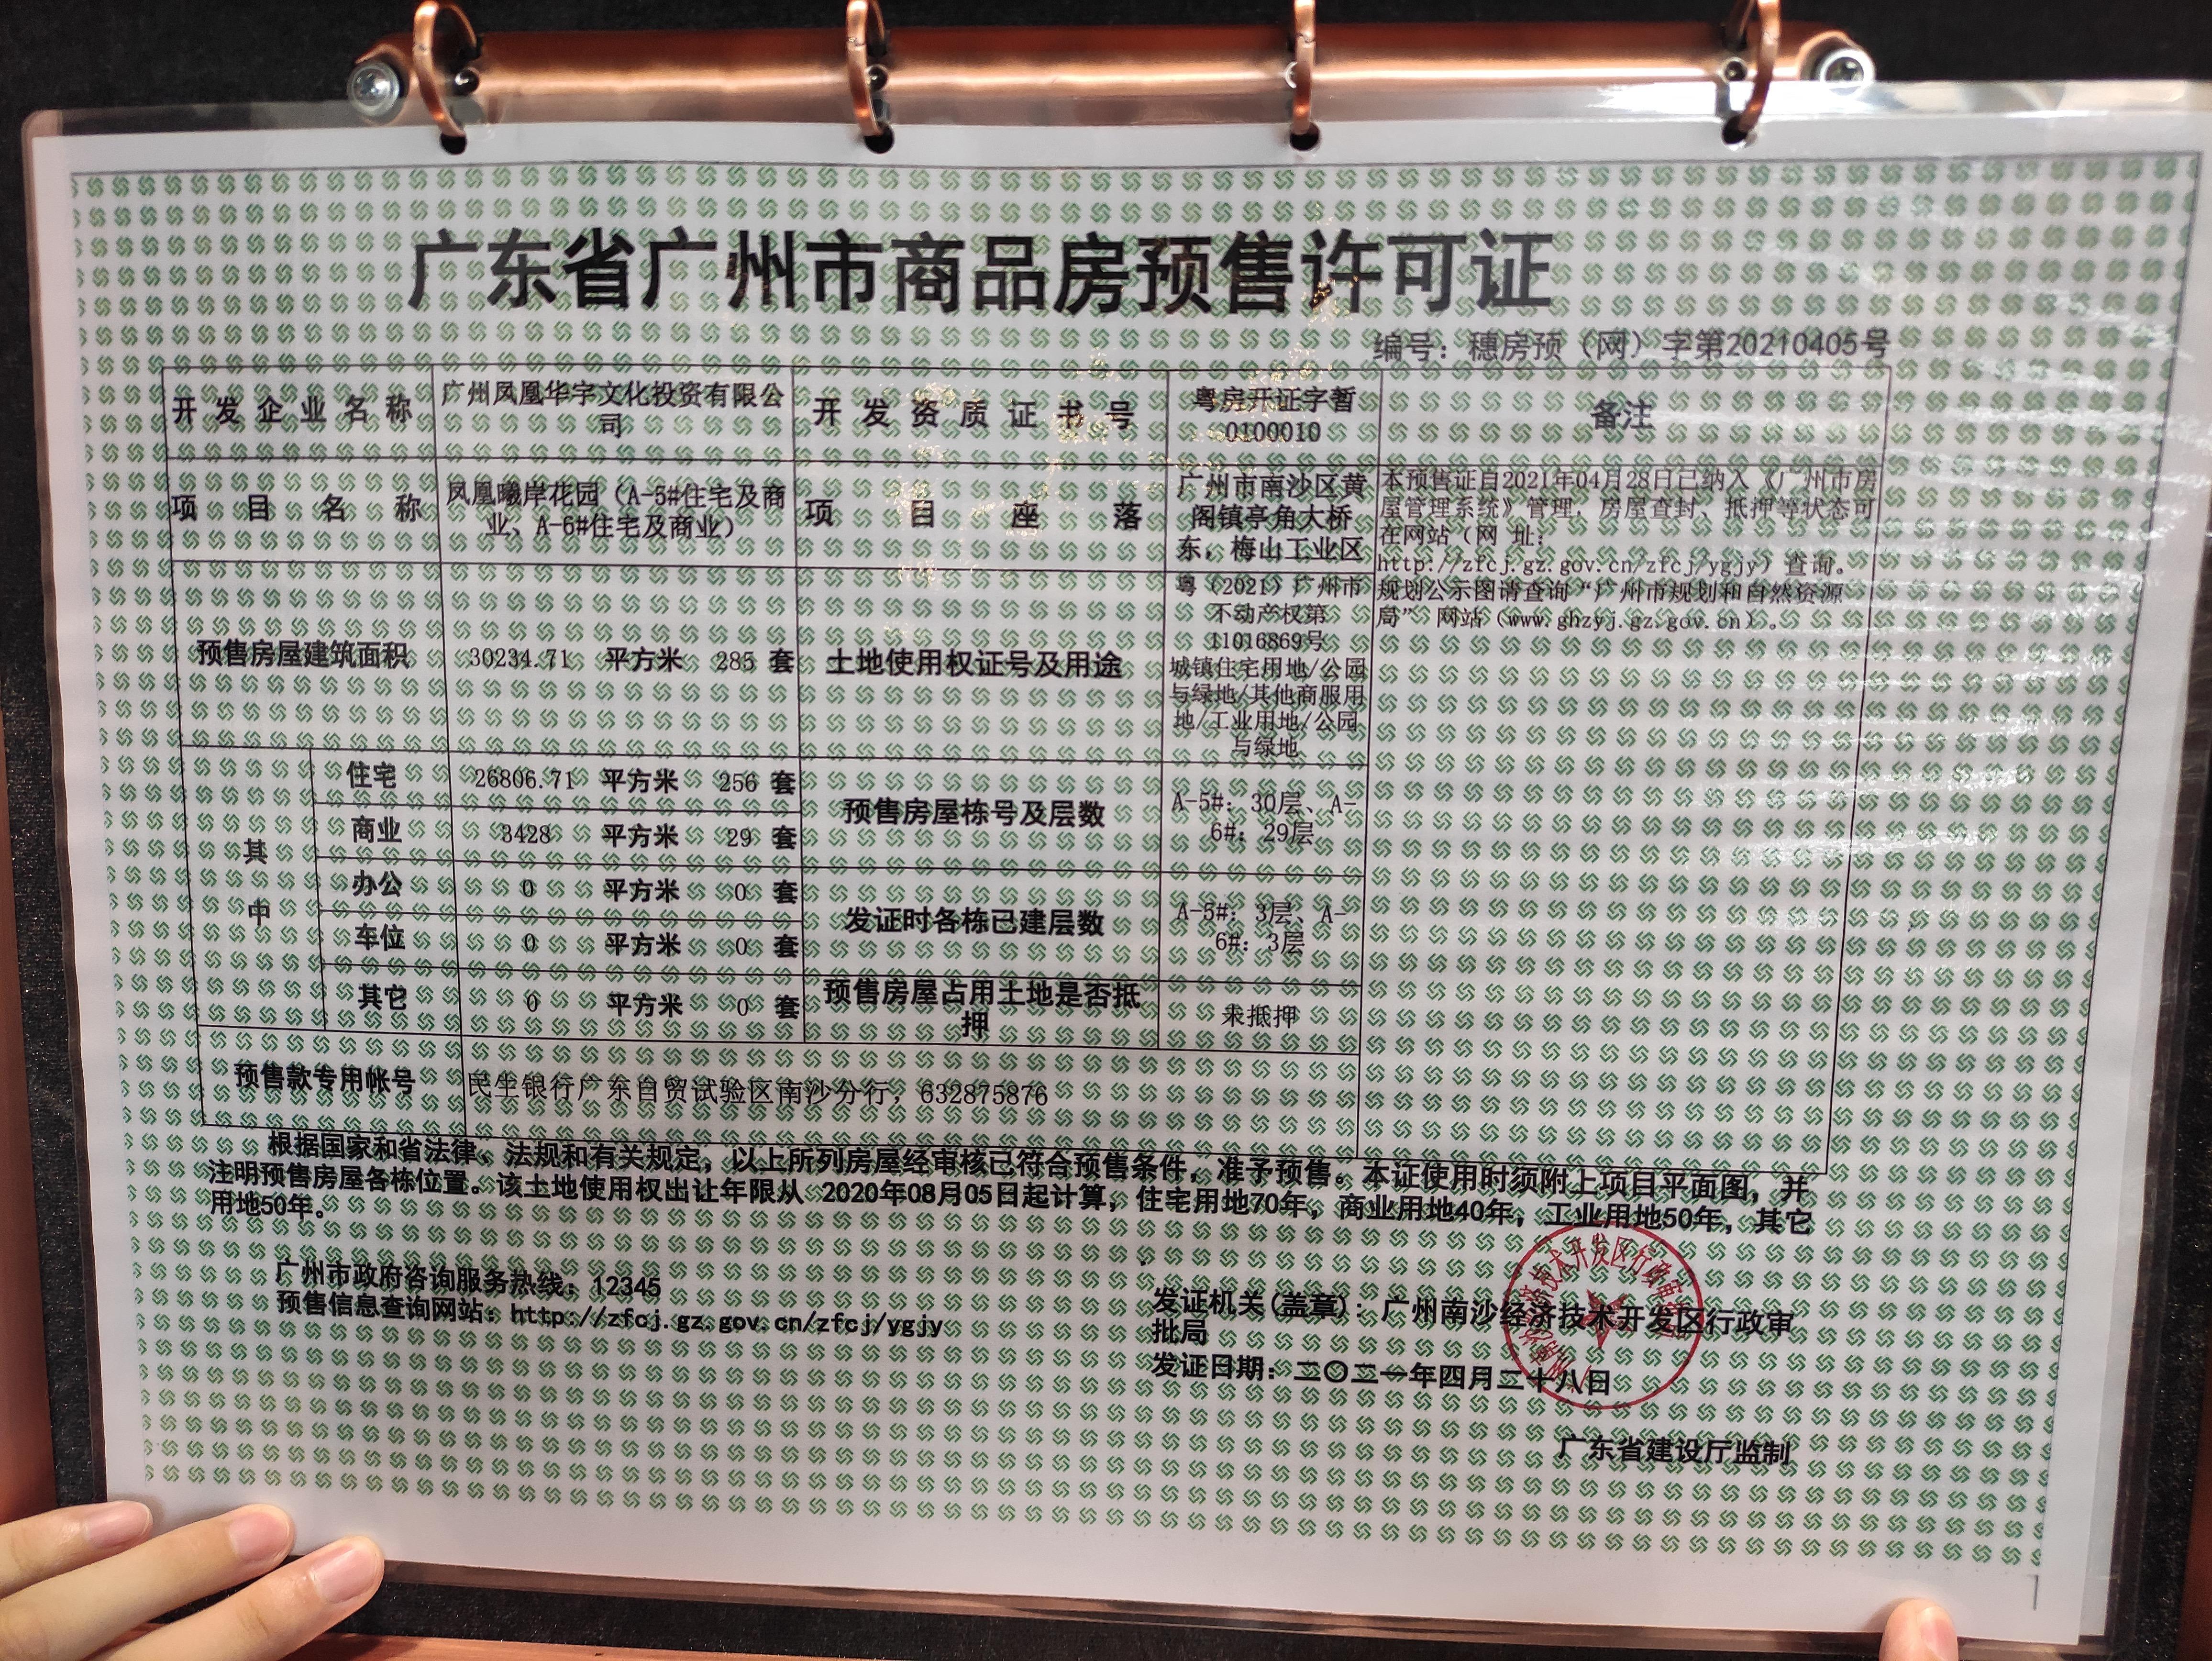 广东省广州市商品房预售许可证
编号：穗房预（网）字第20210405号
开发企业名称
广州凤凰华宇文化投资有限公
司
开发资质证书号
粤房开证字暂
0100010
备注
项目名称
凤凰曦岸花园（A-5#住宅及商
业、A-6#住宅及商业）
项目座落
广州市南沙区黄
阁镇亭角大桥
东，梅山工业区
本预售证自2021年04月28日已纳入《广州市房
屋管理系统》管理，房屋查封、抵押等状态可
在网站（网 址：
http://zfcj.gz.gov.cn/zfcj/ygjy）查询。
规划公示图请查询“广州市规划和自然资源
局” 网站（www.ghzyj.gz.gov.cn）。
预售房屋建筑面积
30234.71 平方米 285 套
土地使用权证号及用途
粤（2021）广州市
不动产权第
11016869号
城镇住宅用地/公园
与绿地/其他商服用
地/工业用地/公园
与绿地
其中
住宅 26806.71 平方米 256 套
商业 3428 平方米 29 套
办公 0 平方米 0 套
车位 0 平方米 0 套
其它 0 平方米 0 套
预售房屋栋号及层数
A-5#：30层、A-
6#：29层
发证时各栋已建层数
A-5#：3层、A-
6#：3层
预售房屋占用土地是否抵
押
未抵押
预售款专用帐号
民生银行广东自贸试验区南沙分行，632875876
根据国家和省法律、法规和有关规定，以上所列房屋经审核已符合预售条件，准予预售。本证使用时须附上项目平面图，并
注明预售房屋各栋位置。该土地使用权出让年限从 2020年08月05日起计算，住宅用地70年，商业用地40年，工业用地50年，其它
用地50年。
广州市政府咨询服务热线：12345
预售信息查询网站：http://zfcj.gz.gov.cn/zfcj/ygjy
发证机关(盖章)：广州南沙经济技术开发区行政审
批局
发证日期：二〇二一年四月二十八日
广东省建设厅监制